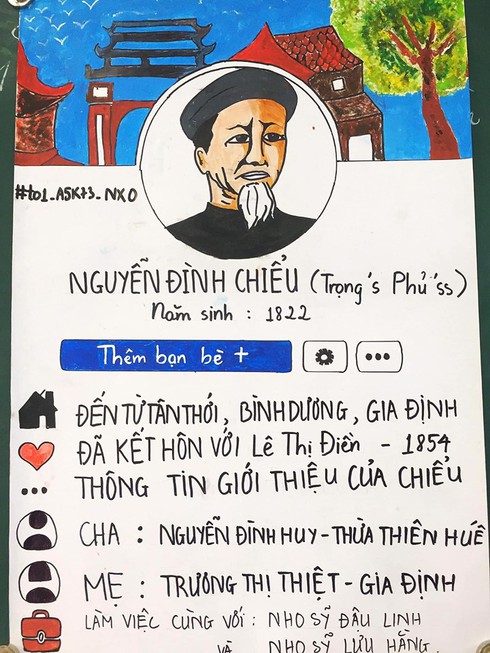 #to1_A5K73_NXO
NGUYỄN ĐÌNH CHIỂU (Trọng's Phủ'ss)
Năm sinh : 1822
Thêm bạn bè +
ĐẾN TỪ TÂN THỚI, BÌNH DƯƠNG, GIA ĐỊNH
ĐÃ KẾT HÔN VỚI Lê Thị Điền - 1854
THÔNG TIN GIỚI THIỆU CỦA CHIỂU
CHA : NGUYỄN ĐÌNH HUY - THỪA THIÊN HUẾ
MẸ : TRƯƠNG THỊ THIỆT - GIA ĐỊNH
LÀM VIỆC CÙNG VỚI : NHO SỸ ĐẬU LINH
VÀ NHO SỸ LƯU HẰNG